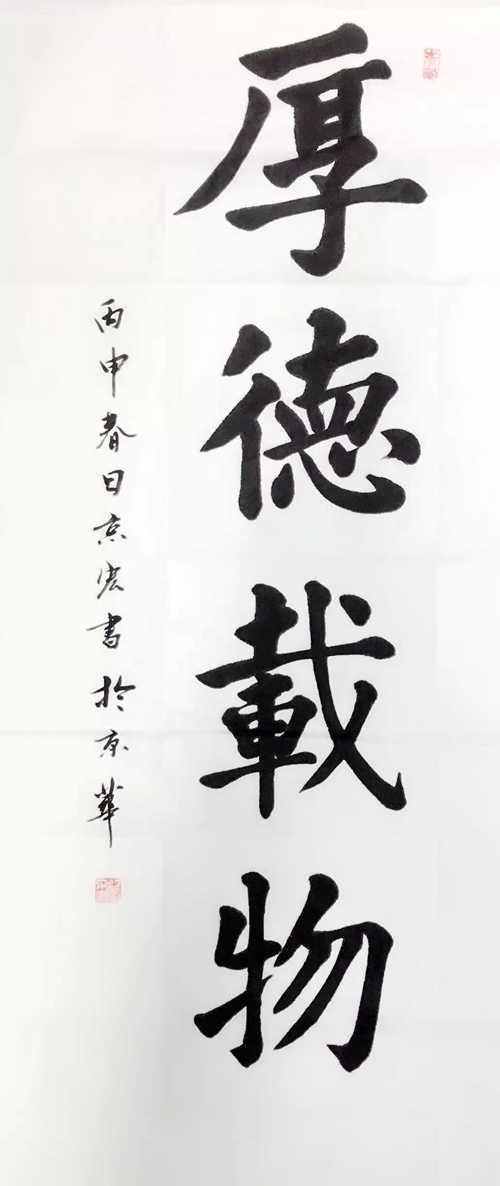 厚德載物
丙申春日京宏書於京華